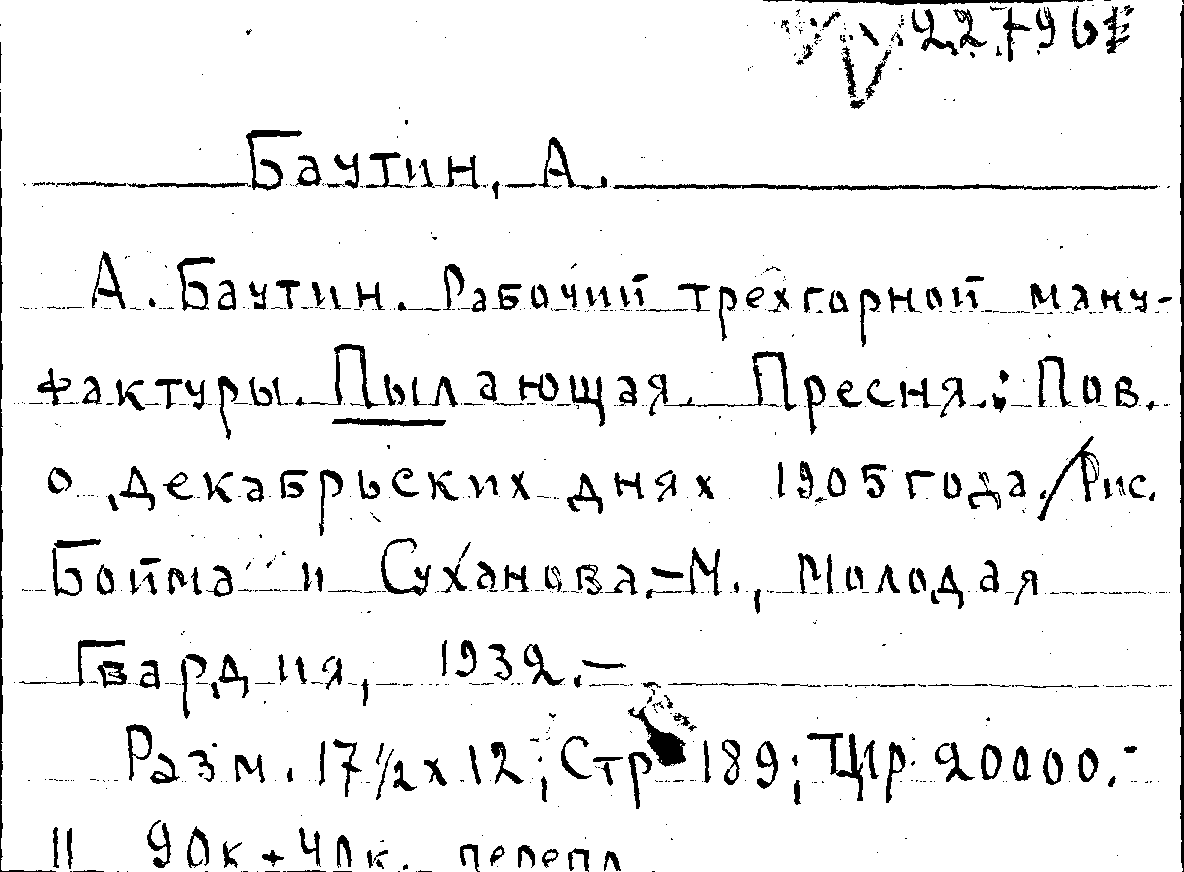 22796
Баутин, А.
А. Баутин. Рабочий трехгорной ману-
фактуры. Пылающая Пресня.: Пов.
о декабрьских днях 1905 года./Рис.
Бойма и Суханова.-М., Молодая
Гвардия, 1932.-
Разм. 17½х12; Стр 189; Тир. 20000.-
90к + 40к. перепл